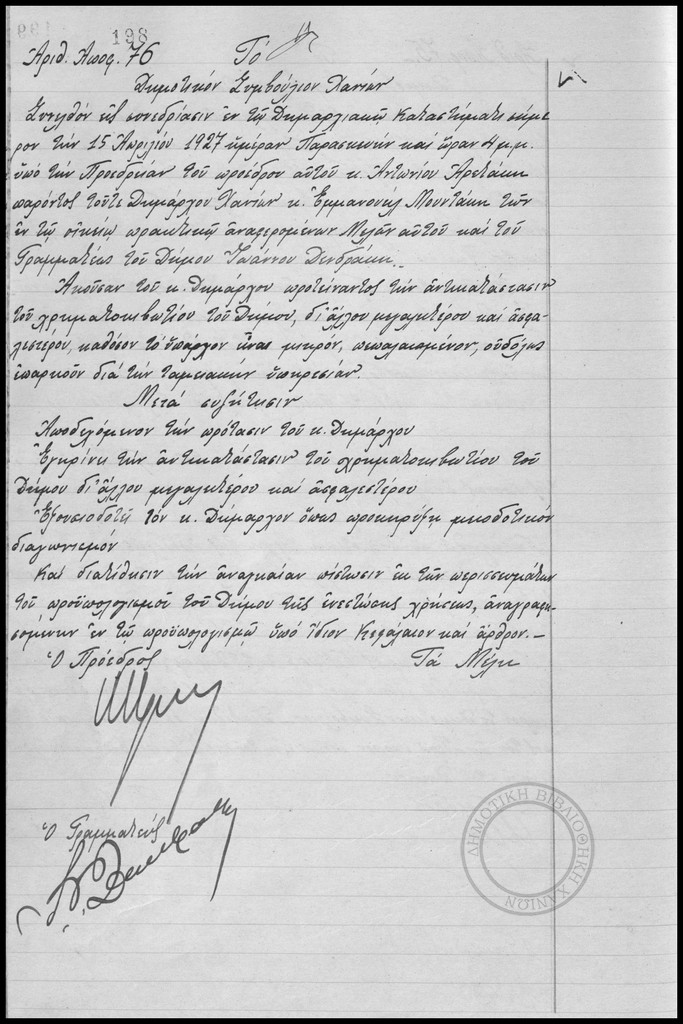 198
Ἀριθ. Ἀποφ. 76 Τό
Δημοτικόν Συμβούλιον Χανίων
Συνελθόν εἰς συνεδρίασιν ἐν τῷ Δημαρχιακῷ Καταστήματι σήμε
ρον τήν 15 Ἀπριλίου 1927 ἡμέραν Παρασκευήν καί ὥραν 4 μ.μ.
ὑπό τήν Προεδρείαν τοῦ προέδρου αὐτοῦ κ. Ἀντωνίου Ἀρετάκη
παρόντος τοῦτε Δημάρχου Χανίων κ. Ἐμμανουήλ Μουντάκη τῶν
ἐν τῷ οἰκείῳ πρακτικῷ ἀναφερομένων Μελῶν αὐτοῦ καί τοῦ
Γραμματέως τοῦ Δήμου Ἰωάννου Δενδράκη.
Ἀκοῦσαν τοῦ κ. Δημάρχου προτείναντος τήν ἀντικατάστασιν
τοῦ χρηματοκιβωτίου τοῦ Δήμου, δι' ἄλλου μεγαλητέρου καί ἀσφα
λεστέρου, καθόσον τό ὑπάρχον εἶναι μικρόν, πεπαλαιωμένον, οὐδόλως
ἐπαρκοῦν διά τήν ταμειακήν ὑπηρεσίαν.
Μετά συζήτησιν
Ἀποδεχόμενον τήν πρότασιν τοῦ κ. Δημάρχου
Ἐγκρίνει τήν ἀντικατάστασιν τοῦ χρηματοκιβωτίου τοῦ
Δήμου δι' ἄλλου μεγαλητέρου καί ἀσφαλεστέρου
Ἐξουσιοδοτεῖ τόν κ. Δήμαρχον ὅπως προκηρύξῃ μειοδοτικόν
διαγωνισμόν
Καί διατίθησιν τήν ἀναγκαίαν πίστωσιν ἐκ τῶν περισσευμάτων
τοῦ προϋπολογισμοῦ τοῦ Δήμου τῆς ἐνεστώσης χρήσεως, ἀναγραφη-
σομένων ἐν τῷ προϋπολογισμῷ ὑπό ἴδιον Κεφάλαιον καί ἄρθρον.—
Ὁ Πρόεδρος Τά Μέλη
Ὁ Γραμματεύς
ΔΗΜΟΤΙΚΗ ΒΙΒΛΙΟΘΗΚΗ ΧΑΝΙΩΝ